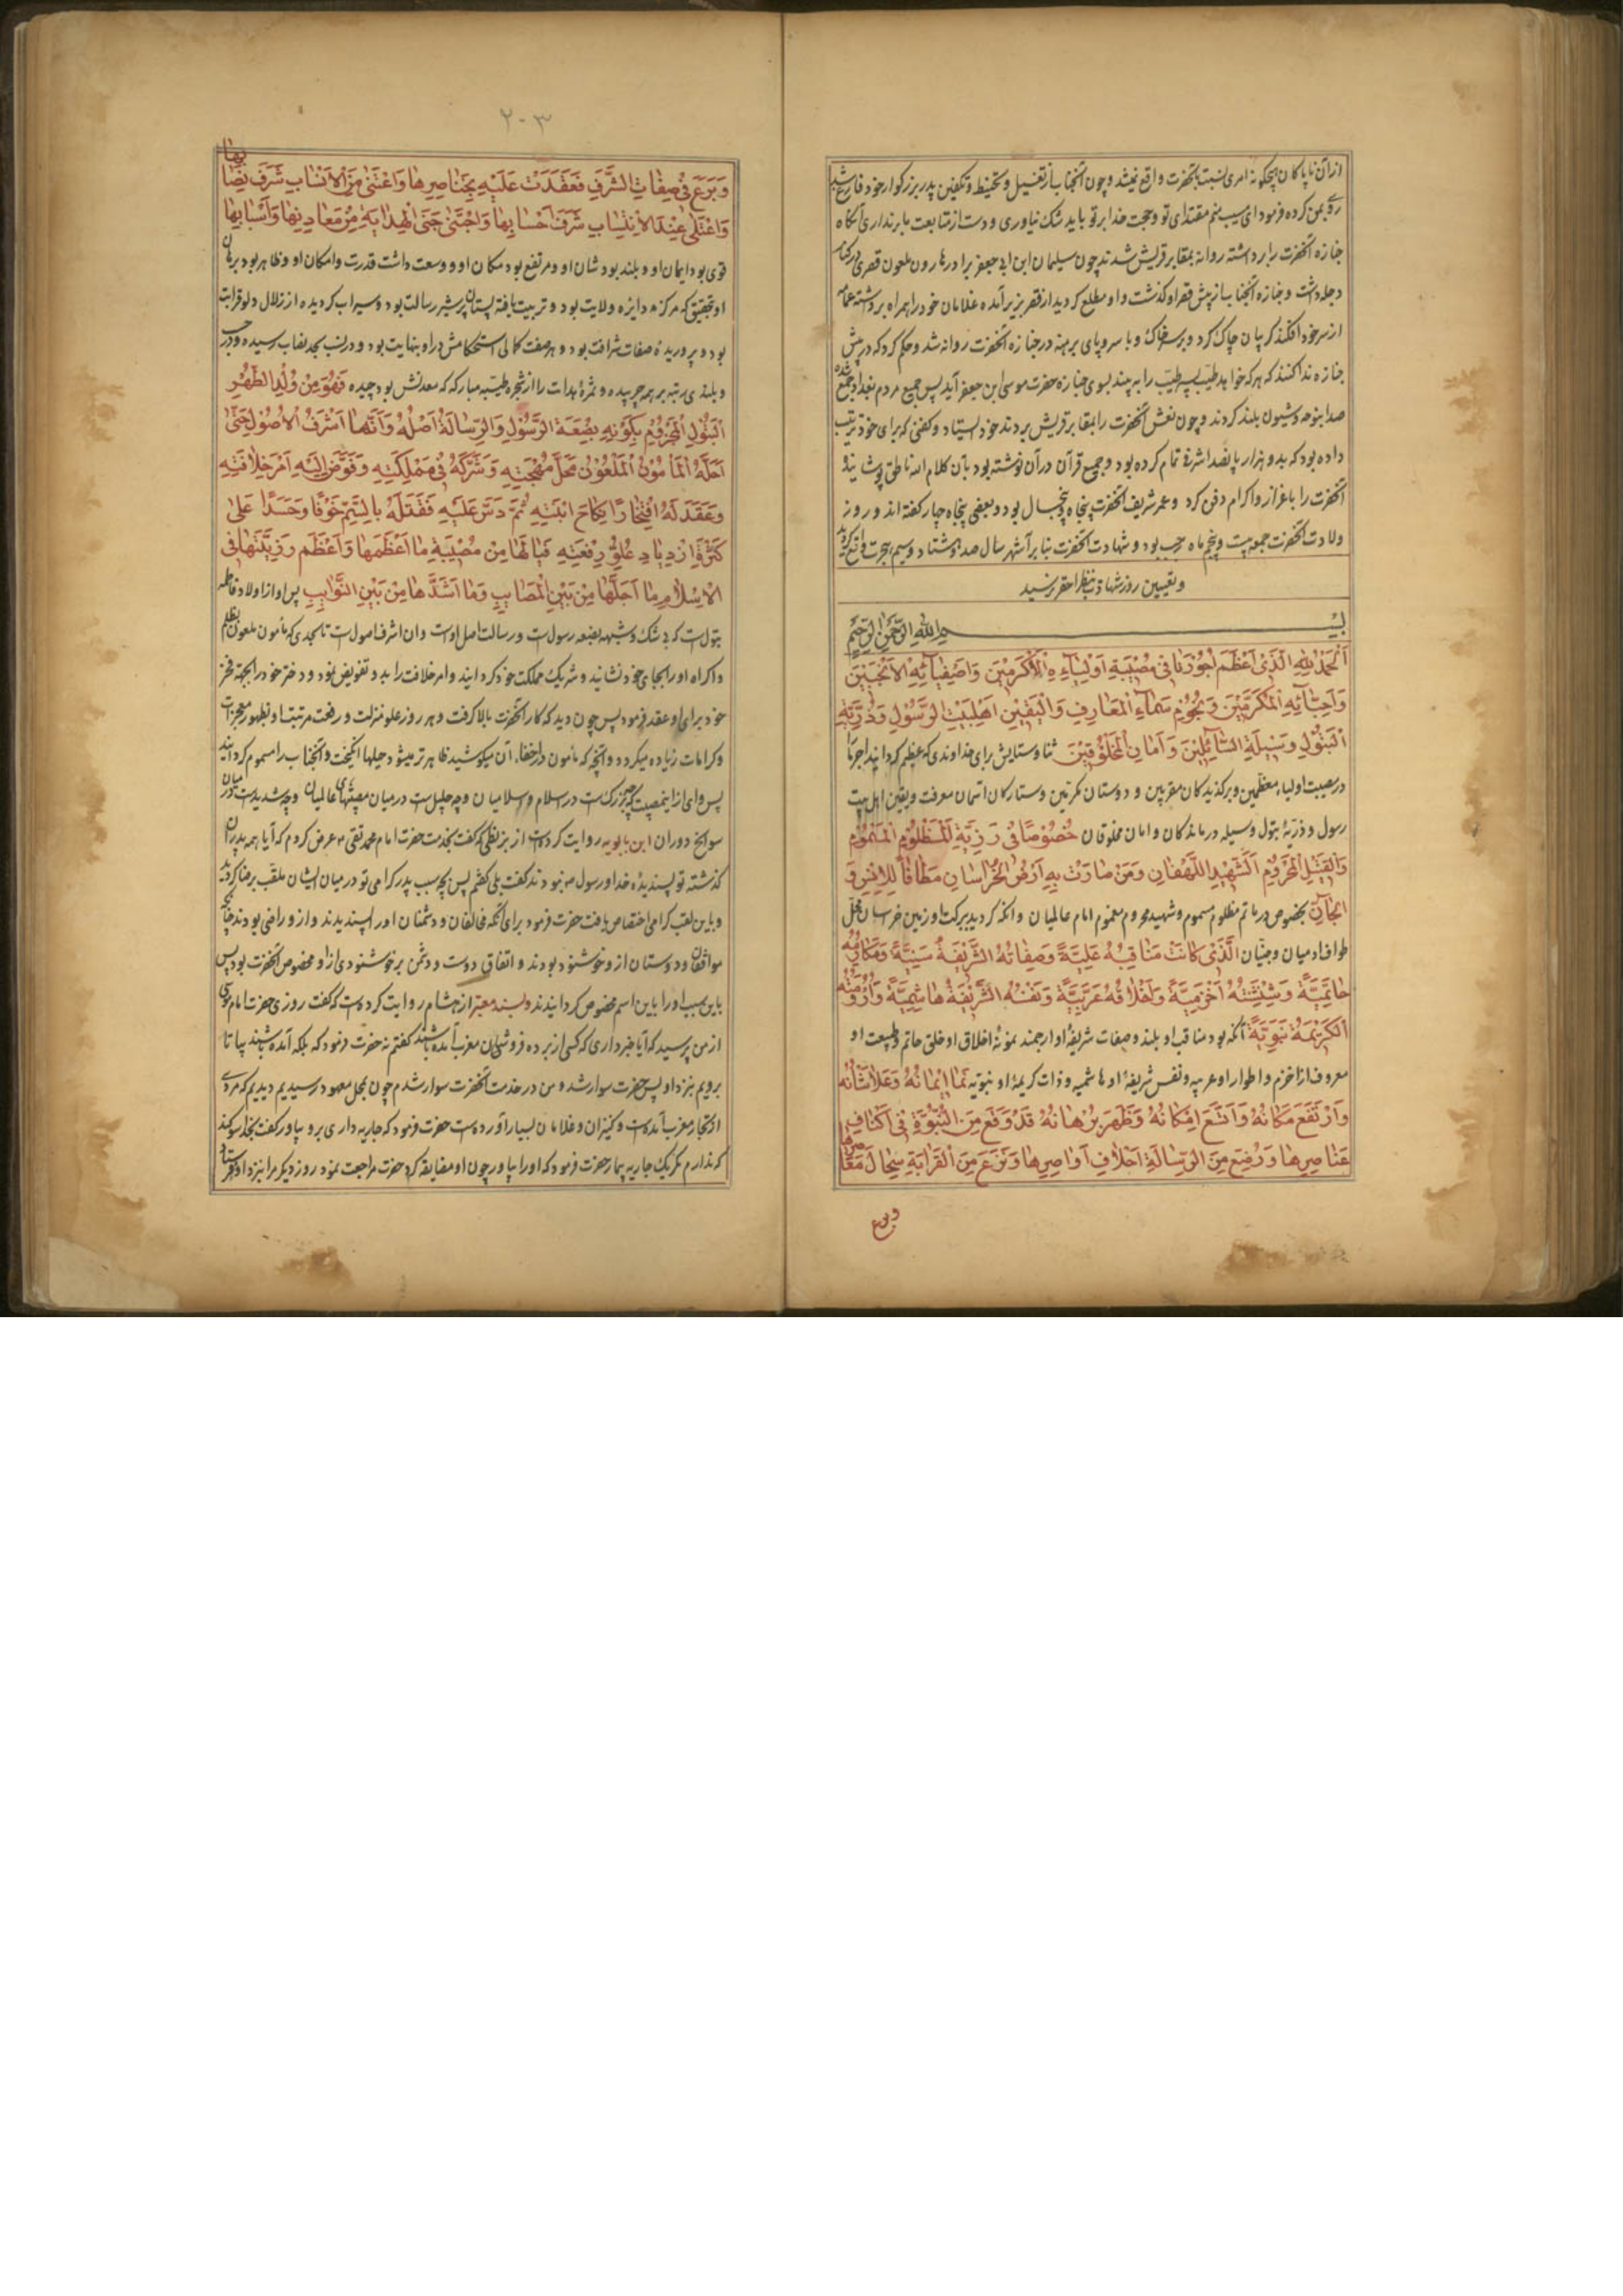 ازان ناپاکان هیچگونه امری نسبت بآنحضرت واقع نمیشد و چون آنجناب از تغسیل و تحنیط و تکفین پدر بزرگوار خود فارغ شد
رو بمن کرده فرمود ای مسیب منم مقتدای تو و حجت خدا بر تو باید شک نیاوری و دست از متابعت ما برنداری آنگاه
جنازه آنحضرت را برداشته روانه بمقابر قریش شدند چون سلیمان ابن ابی جعفر برادر هارون ملعون قصری در کنار
دجله داشت و جنازه آنجناب از پیش قصر او گذشت و او مطلع گردید از قصر بزیر آمده غلامان خود را همراه برداشته عمامه
از سر خود افکند گریبان چاک کرد و بر سر خاک و با سر و پای برهنه در جنازه آنحضرت روانه شد و حکم کرد که در پیش
جنازه ندا کنند که هر که خواهد طیب پسر طیب را به بیند بسوی جنازه حضرت موسی ابن جعفر آید پس جمیع مردم بغداد جمع شده
صدا بنوحه و شیون بلند کردند و چون نعش آنحضرت را بمقابر قریش بردند خود ایستاد و کفنی که برای خود ترتیب
داده بود که بدو هزار پانصد اشرفی تمام کرده بود و جمیع قرآن در آن نوشته بود بآن کلام الله ناطق پوشانید و
آنحضرت را باعزاز و اکرام دفن کرد و عمر شریف آنحضرت پنجاه و پنجسال بود و بعضی پنجاه چهار گفته اند و روز
ولادت آنحضرت جمعه بیست و پنجم ماه رجب بود و شهادت آنحضرت بنا بر اشهر سال صد و هشتاد و سیم هجرت واقع گردید
و تعیین روز شهادت بنظر احقر نرسید
بسم الله الرحمن الرحیم
اَلْحَمْدُ لِلّٰهِ الَّذِی اَعْظَمَ اُجُوْرَنَا فِی مُصِیْبَةِ اَوْلِیَآءِهِ الْاَکْرَمِیْنَ وَاَصْفِیَآئِهِ الْاَنْجَبِیْنَ
وَاَحِبَّآئِهِ الْمُکَرَّمِیْنَ وَنُجُوْمِ سَمَآءِ الْمَعَارِفِ وَالْیَقِیْنِ اَهْلِبَیْتِ الرَّسُوْلِ وَذُرِّیَّةِ
الْبَتُوْلِ وَسِیْلَةِ السَّآئِلِیْنَ وَاَمَانِ الْمَخْلُوْقِیْنَ ثنا و ستایش برای خداوندی که عظیم گردانید اجر ما
در مصیبت اولیاء معظمین و برگزیدکان مقربین و دوستان مکرمین و ستارکان آسمان معرفت و یقین اهل بیت
رسول و ذریهٔ بتول وسیله درماندکان و امان مخلوقان خُصُوْصًا فِی رَزِیَّةِ الْمَظْلُوْمِ الْمَسْمُوْمِ
وَالْقَتِیْلِ الْمَحْرُوْمِ الشَّهِیْدِ اللَّهْفَانِ وَمَنْ صَارَتْ بِهِ اَرْضُ الْخُرَاسَانِ مَطَافًا لِلْاِنْسِ وَ
الْجَآنِّ بخصوص در ماتم مظلوم مسموم و شهید محروم مغموم امام عالمیان و آنکه گردید ببرکت او زمین خراسان محل
طواف آدمیان و جنیان الَّذِیْ کَانَتْ مَنَاقِبُهُ عَلِیَّةً وَصِفَاتُهُ الشَّرِیْفَةُ سَنِیَّةً وَمَکَارِمُهُ
حَاتَمِیَّةً وَشِنْشِنَتُهُ اَخْزَمِیَّةً وَاَخْلَاقُهُ عَرَبِیَّةً وَنَفْسُهُ الشَّرِیْفَةُ هَاشِمِیَّةً وَاَرُوْمَتُهُ
الْکَرِیْمَةُ نَبَوِیَّةً آنکه بود مناقب او بلند و صفات شریفهٔ او ارجمند نمونهٔ اخلاق او خلق حاتم و طبیعت او
معروف از اخزم و اطوار او عربیه و نفس شریفهٔ او هاشمیه و ذات کریمهٔ او نبویه نَمَا اِیْمَانُهُ وَعَلَا شَأْنُهُ
وَارْتَفَعَ مَکَانُهُ وَاتَّسَعَ اِمْکَانُهُ وَظَهَرَ بُرْهَانُهُ قَدْ وَقَعَ مِنَ النُّبُوَّةِ فِی اَکْنَافِ
عَنَاصِرِهَا وَرُضِعَ مِنَ الرِّسَالَةِ اَخْلَافِ اَوَاصِرِهَا وَنَزَعَ مِنَ الْقَرَابَةِ سِجَالَ
وبرع
۲۰۳
وَبَرَعَ فِی صِفَاتِ الشَّرَفِ فَعُقِدَتْ عَلَیْهِ بِخَنَاصِرِهَا وَاغْتَنٰی مِنَ الْاَنْسَابِ شَرَفَ نِصَابِهَا
وَاعْتَلٰی عِنْدَ الْاِنْتِسَابِ شَرَفَ اَحْسَابِهَا وَاجْتَنٰی جَنَی الْهِدَایَةِ مِنْ مَعَادِنِهَا وَاَسْبَابِهَا
قوی بود ایمان او و بلند بود شان او و مرتفع بود مکان او و وسعت داشت قدرت و امکان او و ظاهر بود برهان
او بتحقیق که مرکز دایره ولایت بود و تربیت یافته پستان پر شیر رسالت بود و سیراب گردیده از زلال دلو قرابت
بود و پروریدهٔ صفات شرافت بود و هر صفت کمالی استحکامش در او بنهایت بود و در نسب بحد نصاب رسیده و در حسب
و بلندی رتبه بر همه چربیده و ثمرهٔ هدایت را از شجره طیبه مبارکه که معدنش بود چیده فَهُوَ مِنْ وُلْدِ الطُّهْرِ
الْبَتُوْلِ الْمَجْزُوْمِ بِکَوْنِهِ بِضْعَةَ الرَّسُوْلِ وَالرِّسَالَةُ اَصْلُهُ وَاَنَّهَا اَشْرَفُ الْاُصُوْلِ حَتّٰی
اَحَلَّهُ الْمَأْمُوْنُ الْمَلْعُوْنُ مَحَلَّ مُهْجَتِهِ وَشَرَّکَهُ فِی مَمْلِکَتِهِ وَفَوَّضَ اِلَیْهِ اَمْرَ خِلَافَتِهِ
وَعَقَدَ لَهُ افْتِخَارًا نِکَاحَ ابْنَتِهِ ثُمَّ دَسَّ عَلَیْهِ فَقَتَلَهُ بِالسَّمِّ خَوْفًا وَحَسَدًا عَلٰی
کَثْرَةِ ازْدِیَادِ عُلُوِّ رِفْعَتِهِ فَیَا لَهَا مِنْ مُصِیْبَةٍ مَا اَعْظَمَهَا وَاَعْظَمَ رَزِیَّتَهَا فِی
الْاِسْلَامِ مَا اَجَلَّهَا مِنْ بَیْنِ الْمَصَایِبِ وَمَا اَشَدَّهَا مِنْ بَیْنِ النَّوَایِبِ پس او از اولاد فاطمه
بتول است که بی شک و شبهه بضعه رسول است و رسالت اصل اوست و آن اشرف اصول است تا بحدی که مأمون ملعون بظلم
و اکراه او را بجای خود نشانید و شریک مملکت خود گردانید و امر خلافت را بدو تفویض نمود و دختر خود را بجهة فخر
خود برای او عقد فرمود پس چون دید که کار آنحضرت بالا گرفت و هر روز علو منزلت و رفعت مرتبت او بظهور معجزات
و کرامات زیاده میگردد و آنچه که مأمون در اخفاء آن میکوشید ظاهرتر میشود حیلها انگیخت و آنجناب را مسموم گردانید
پس وای از این مصیبت که چه بزرگست در اسلام و اسلامیان و چه جلیل است در میان مصیبتهای عالمیان و چه شدید است در میان
سوانح دوران ابن بابویه روایت کرده است از بزنطی که گفت بخدمت حضرت امام محمد تقی ع عرض کردم که آیا همه پدران
گذشته تو پسندیدهٔ خدا و رسول ص نبودند گفت بلی گفتم پس بچه سبب پدر گرامی تو در میان ایشان ملقب برضا گردید
و باین لقب گرامی اختصاص یافت حضرت فرمود برای آنکه مخالفان و دشمنان او را پسندیدند و از او راضی بودند چنانچه
موافقان و دوستان از او خوشنود بودند و اتفاق دوست و دشمن بر خوشنودی از او مخصوص آنحضرت بود پس
باین سبب او را باین اسم مخصوص گردانیدند و بسند معتبر از هشام روایت کرده است که گفت روزی حضرت امام موسی
از من پرسید که آیا خبر داری که کسی از برده فروشان مغرب آمده باشد گفتم نه حضرت فرمود که بلکه آمده باشند بیا تا
برویم بنزد او پس حضرت سوار شد و من در خدمت آنحضرت سوار شدم چون بمحل معهود رسیدیم دیدیم که مردی
از تجار مغرب آمده است و کنیزان و غلامان بسیار آورده است حضرت فرمود که جاریه داری برو بیاور گفت بخدا سوگند
که ندارم مگر یک جاریه بیمار حضرت فرمود که او را بیاور چون او مضایقه کرد حضرت مراجعت نمود روز دیگر مرا بنزد او فرستاد